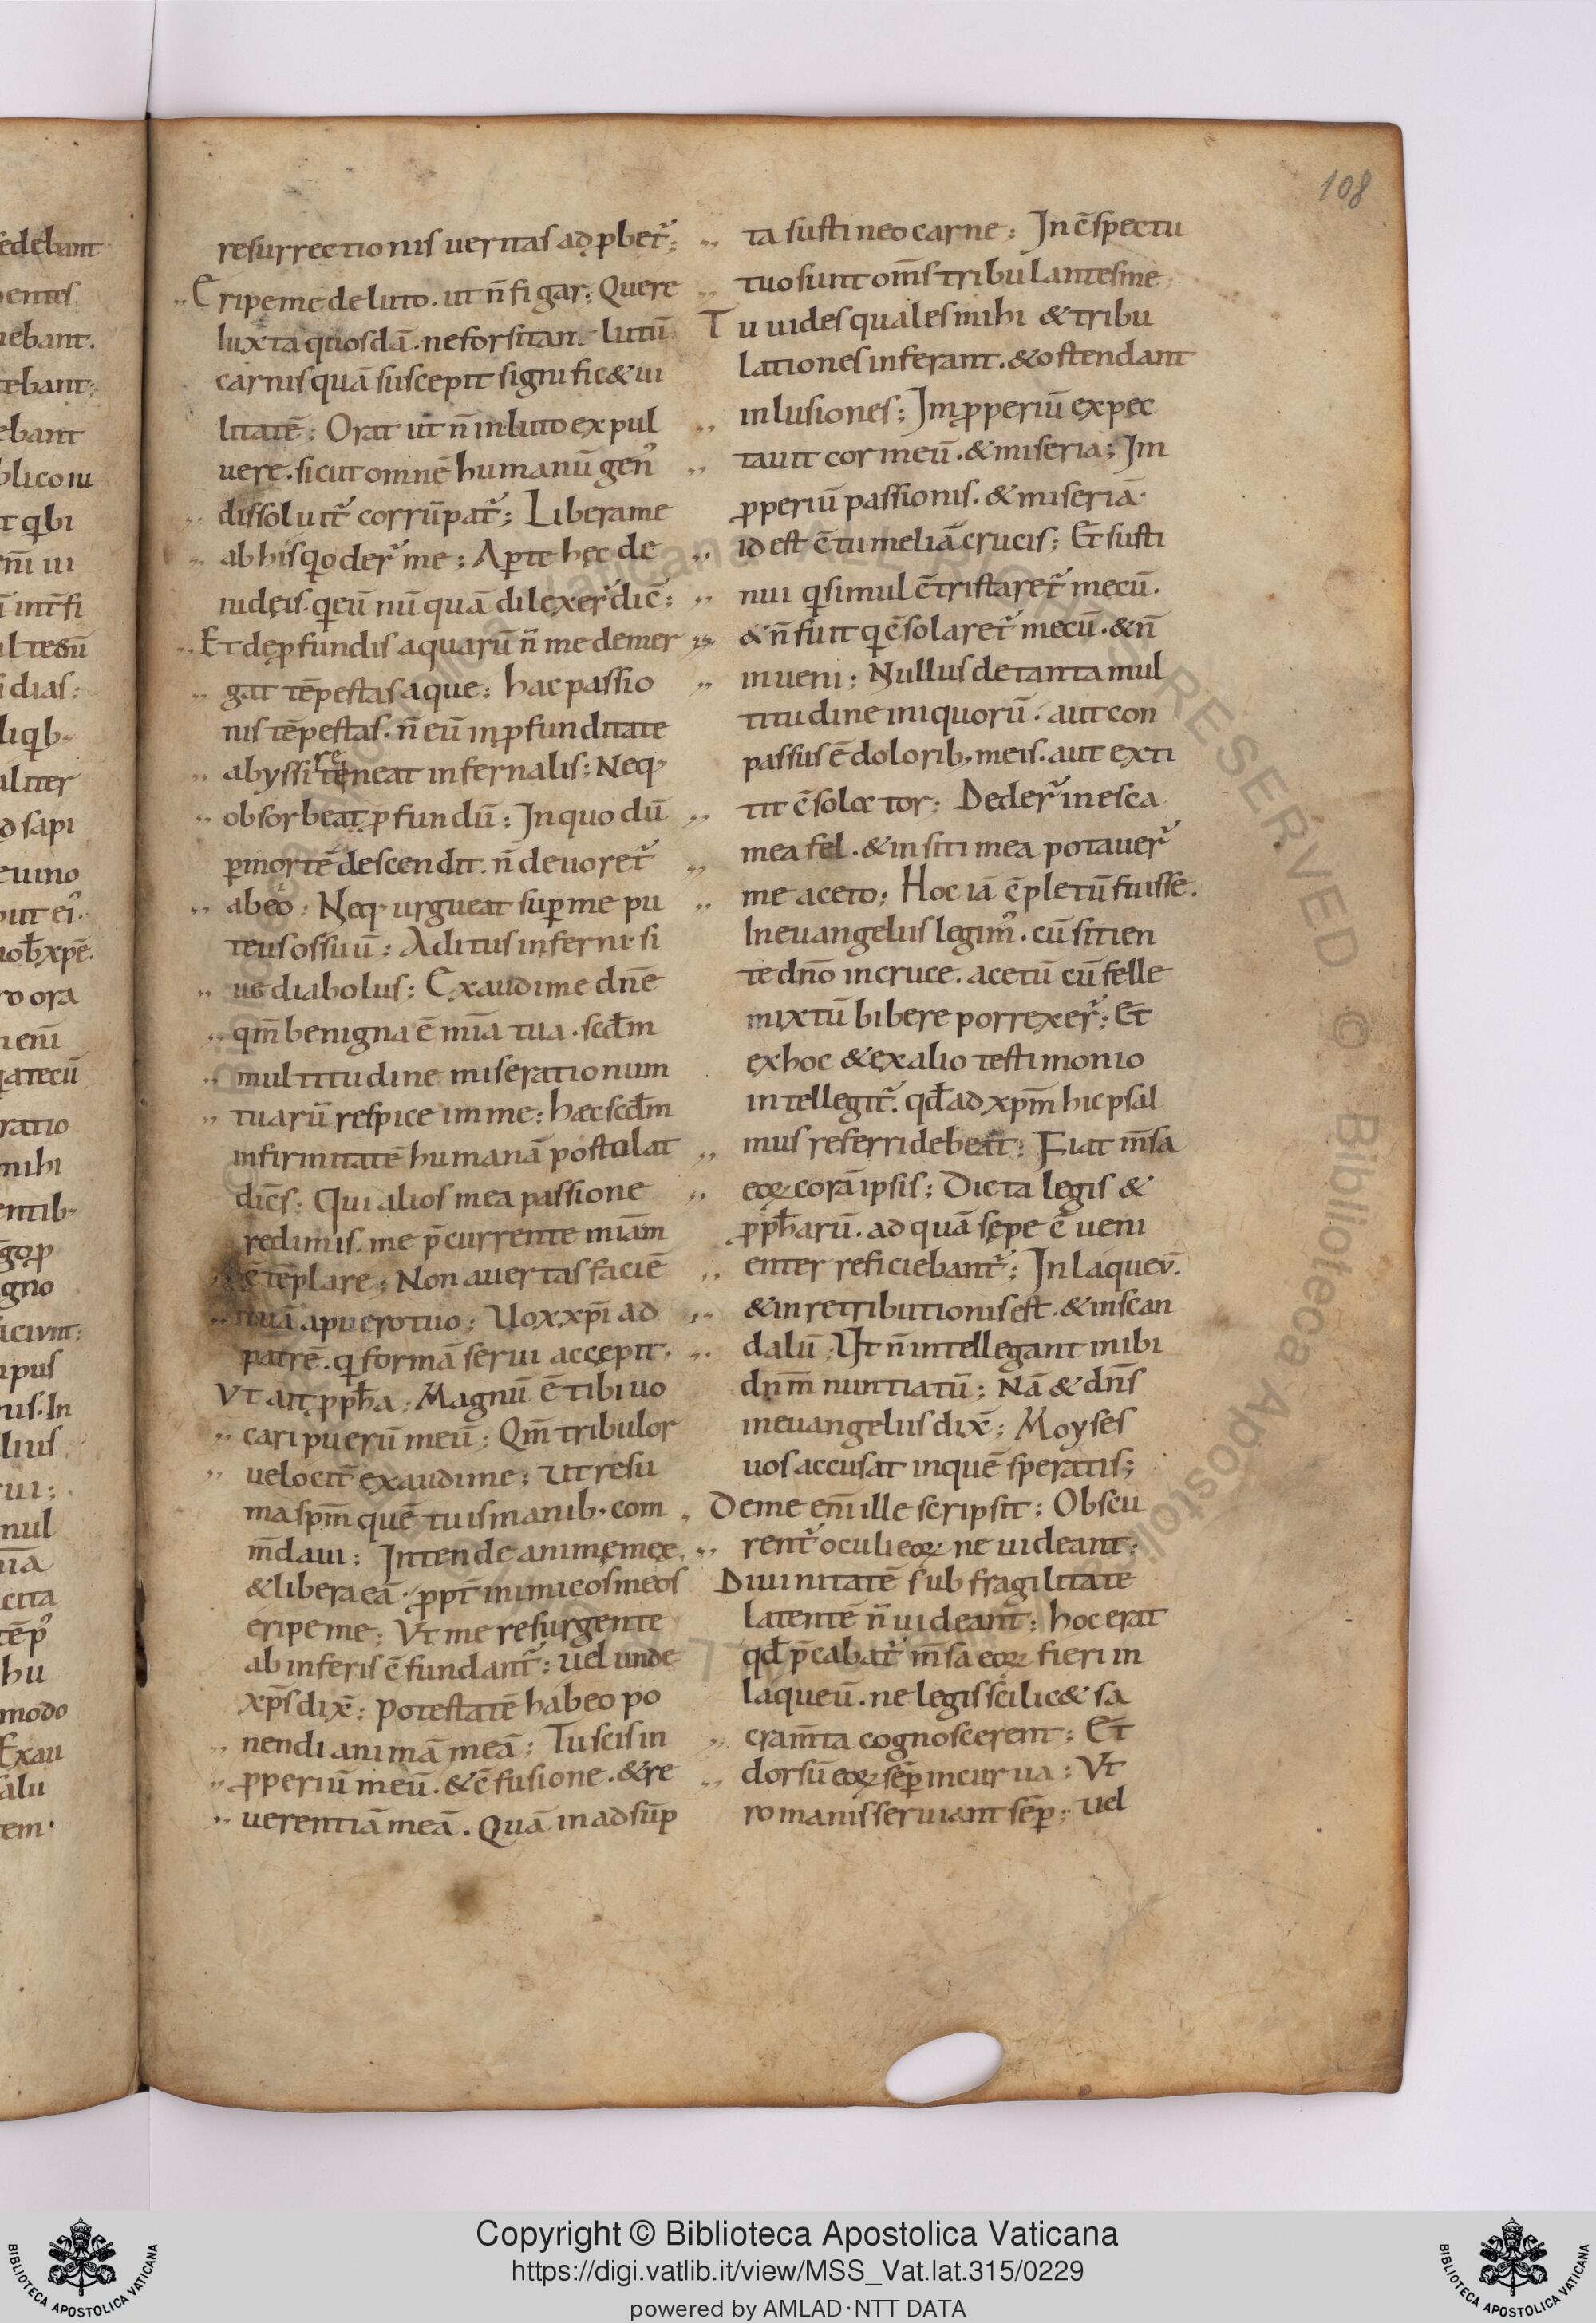 108
resurrectionis ueritas adp̱bet᷑;
Eripe me de luto. ut n̄ figar; Quere
luxta quosdā. ne forsitan lutū
carnis quā suscepit signific& ui
litatē; Orat ut n̄ in luto ex pul
uere. sicut omnē humanū gen᾽
dissoluit᷑ corrūpat᷑; Libera me
ab his q̇ oder᷑ me; Aꝑte hęc de
iudęis. q̇ eū nū quā dilexer᷑ dic̄;
Et de ꝓfundis aquarū n̄ me demer
gat tēpestas aque; hac passio
nis tēpestas. n̄ eū in ꝓfunditate
abyssi reteneat infernalis; Neq;
obsorbeat ꝓfundū; In quo dū
ꝑ mortē descendit. n̄ deuoret᷑
ab eo; Neq; urgueat suꝑ me pu
teus os suū; Aditus inferni si
ue diabolus; Exaudi me dn̄e
qm̄ benigna ē mīa tua. scd̄m
multitudine miserationum
tuarū respice im me; hæc scd̄m
infirmitatē humanā postulat
dic̄s; Qui alios mea passione
redimis. me p̄currente miām
c̄tēplare; Non auertas faciē
tuā a puero tuo; Uox xp̄i ad
patrē. q̇ formā serui accępit.
Vt ait ꝓph̄a; Magnū ē tibi uo
cari puerū meū; Qm̄ tribulor
uelocit̄ exaudi me; ut resu
ma sp̄m quē tuis manib; com
m̄daui; Intende animę meę
& libera eā. ꝓpt̄ inimicos meos
eripe me; Vt me resurgente
ab inferis c̄fundant᷑; uel unde
xp̄s dix̄; Potestatē habeo po
nendi animā meā; Tu scis in
ꝓperiū meū. & c̄fusione. & re
uerentiā meā. Quā in adsūp
ta sustineo carne; In c̄spectu
tuo sunt om̄s tribulantes me
Tu uides quales mihi & tribu
lationes inferant. & ostendant
inlusiones; Imꝓperiū expec
tauit cor meū. & miseria; Im
ꝓperiū passionis. & miseriā.
id est c̄tumeliā crucis; Et susti
nui q̇ simul c̄tristaret᷑ mecū.
& n̄ fuit q̇ c̄solaret᷑ mecū. & n̄
inueni; Nullus de tanta mul
titudine iniquorū. aut con
passus ē dolorib; meis. aut exti
tit c̄solator; Deder᷑ in esca
mea fel. & in siti mea potauer᷑
me aceto; Hoc iā c̄pletū fuisse.
In euangeliis legim᾽. cū sitien
te dn̄o in cruce. acetū cū felle
mixtū bibere porrexer᷑; Et
ex hoc & ex alio testimonio
intellegit᷑. qd̄ ad xp̄m hic psal
mus referri debeat; Fiat m̄sa
eoꝝ corā ipsis; Dicta legis &
ꝓph̄arū. ad quā sępe c̄ueni
enter reficiebant᷑; In laqueū.
& in retributionis est. & in scan
dalū; Vt n̄ intellegant mihi
dn̄m nuntiatū; Nā & dn̄s
in euangeliis dix̄; Moyses
uos accusat in quē speratis;
De me em̄ ille scripsit; Obscu
rent᷑ oculi eoꝝ ne uideant;
Diuinitatē sub fragilitate
latentē n̄ uideant; hoc erat
qd̄ p̄cabat᷑ m̄sa eoꝝ fieri in
laqueū. ne legis scilic& sa
cram̄ta cognoscerent; Et
dorsū eoꝝ sēꝑ incurua; Vt
romanis seruiant sēꝑ; uel
Copyright © Biblioteca Apostolica Vaticana
https://digi.vatlib.it/view/MSS_Vat.lat.315/0229
powered by AMLAD·NTT DATA